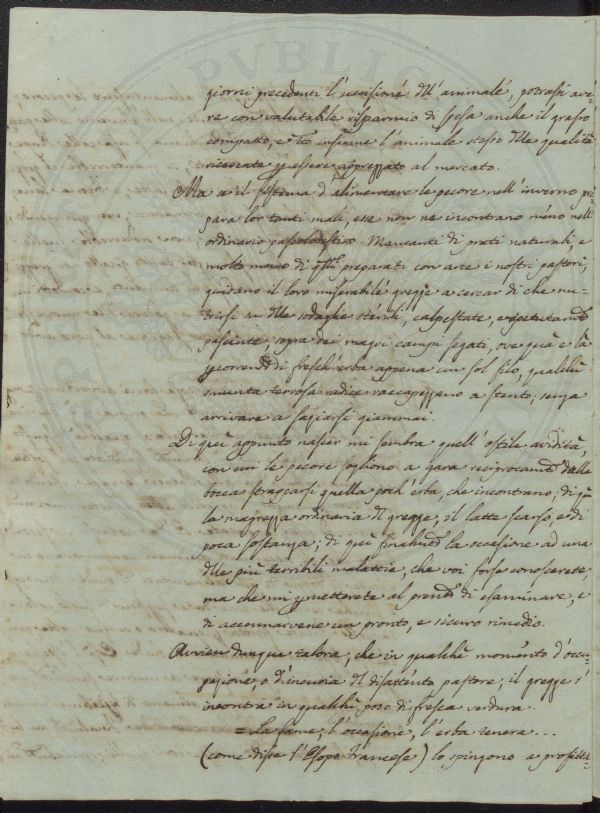 giorni precedenti l'uccisione dell'animale, potrassi ave=
re con valutabile risparmio di spesa anche il grasso
compatto, e tto insieme l'animale stesso delle qualità
ricercate p essere apprezzato al mercato.
Ma se il sistema d'alimentare le pecore nell'inverno pre=
para lor tanti mali, esse non ne incontrano meno nell'
ordinario pascolo estivo. Mancanti di prati naturali, e
molto meno di qlli preparati con arte i nostri pastori,
guidano il loro miserabile gregge a cercar di che nu=
trirsi su delle sodaglie sterili, calpestate, e
pasciute, sopra dei magri campi segati, ove quà e là
scorrendo di fresch'erba appena un sol filo, qualche
smunta terrosa radice raccapezzano a stento, senza
arrivare a saziarsi giammai.
Di quì appunto nascer mi sembra quell'ostile avidità,
con cui le pecore sogliono a gara reciprocamte dalle
bocca strapparsi quella poch'erba, che incontrano; di quì
la magrezza ordinaria del gregge, il latte scarso, e di
poca sostanza; di quì finalmte la occasione ad una
delle più terribili malattie, che voi forse conoscerete,
ma che mi pmetterete al prente di esaminare, e
di accennarvene un pronto, e sicuro rimedio.
Avvien dunque talora, che in qualche momento d'occu=
pazione, o d'incuria del disattento pastore, il gregge s'
incontra in qualche poco di fresca verdura.
= La fame, l'occasione, l'erba tenera ...
(come disse l'Esopo Francese) lo spingono a profitta=